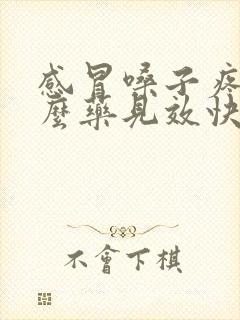 感冒嗓子疼
麼藥見效快
不會下棋